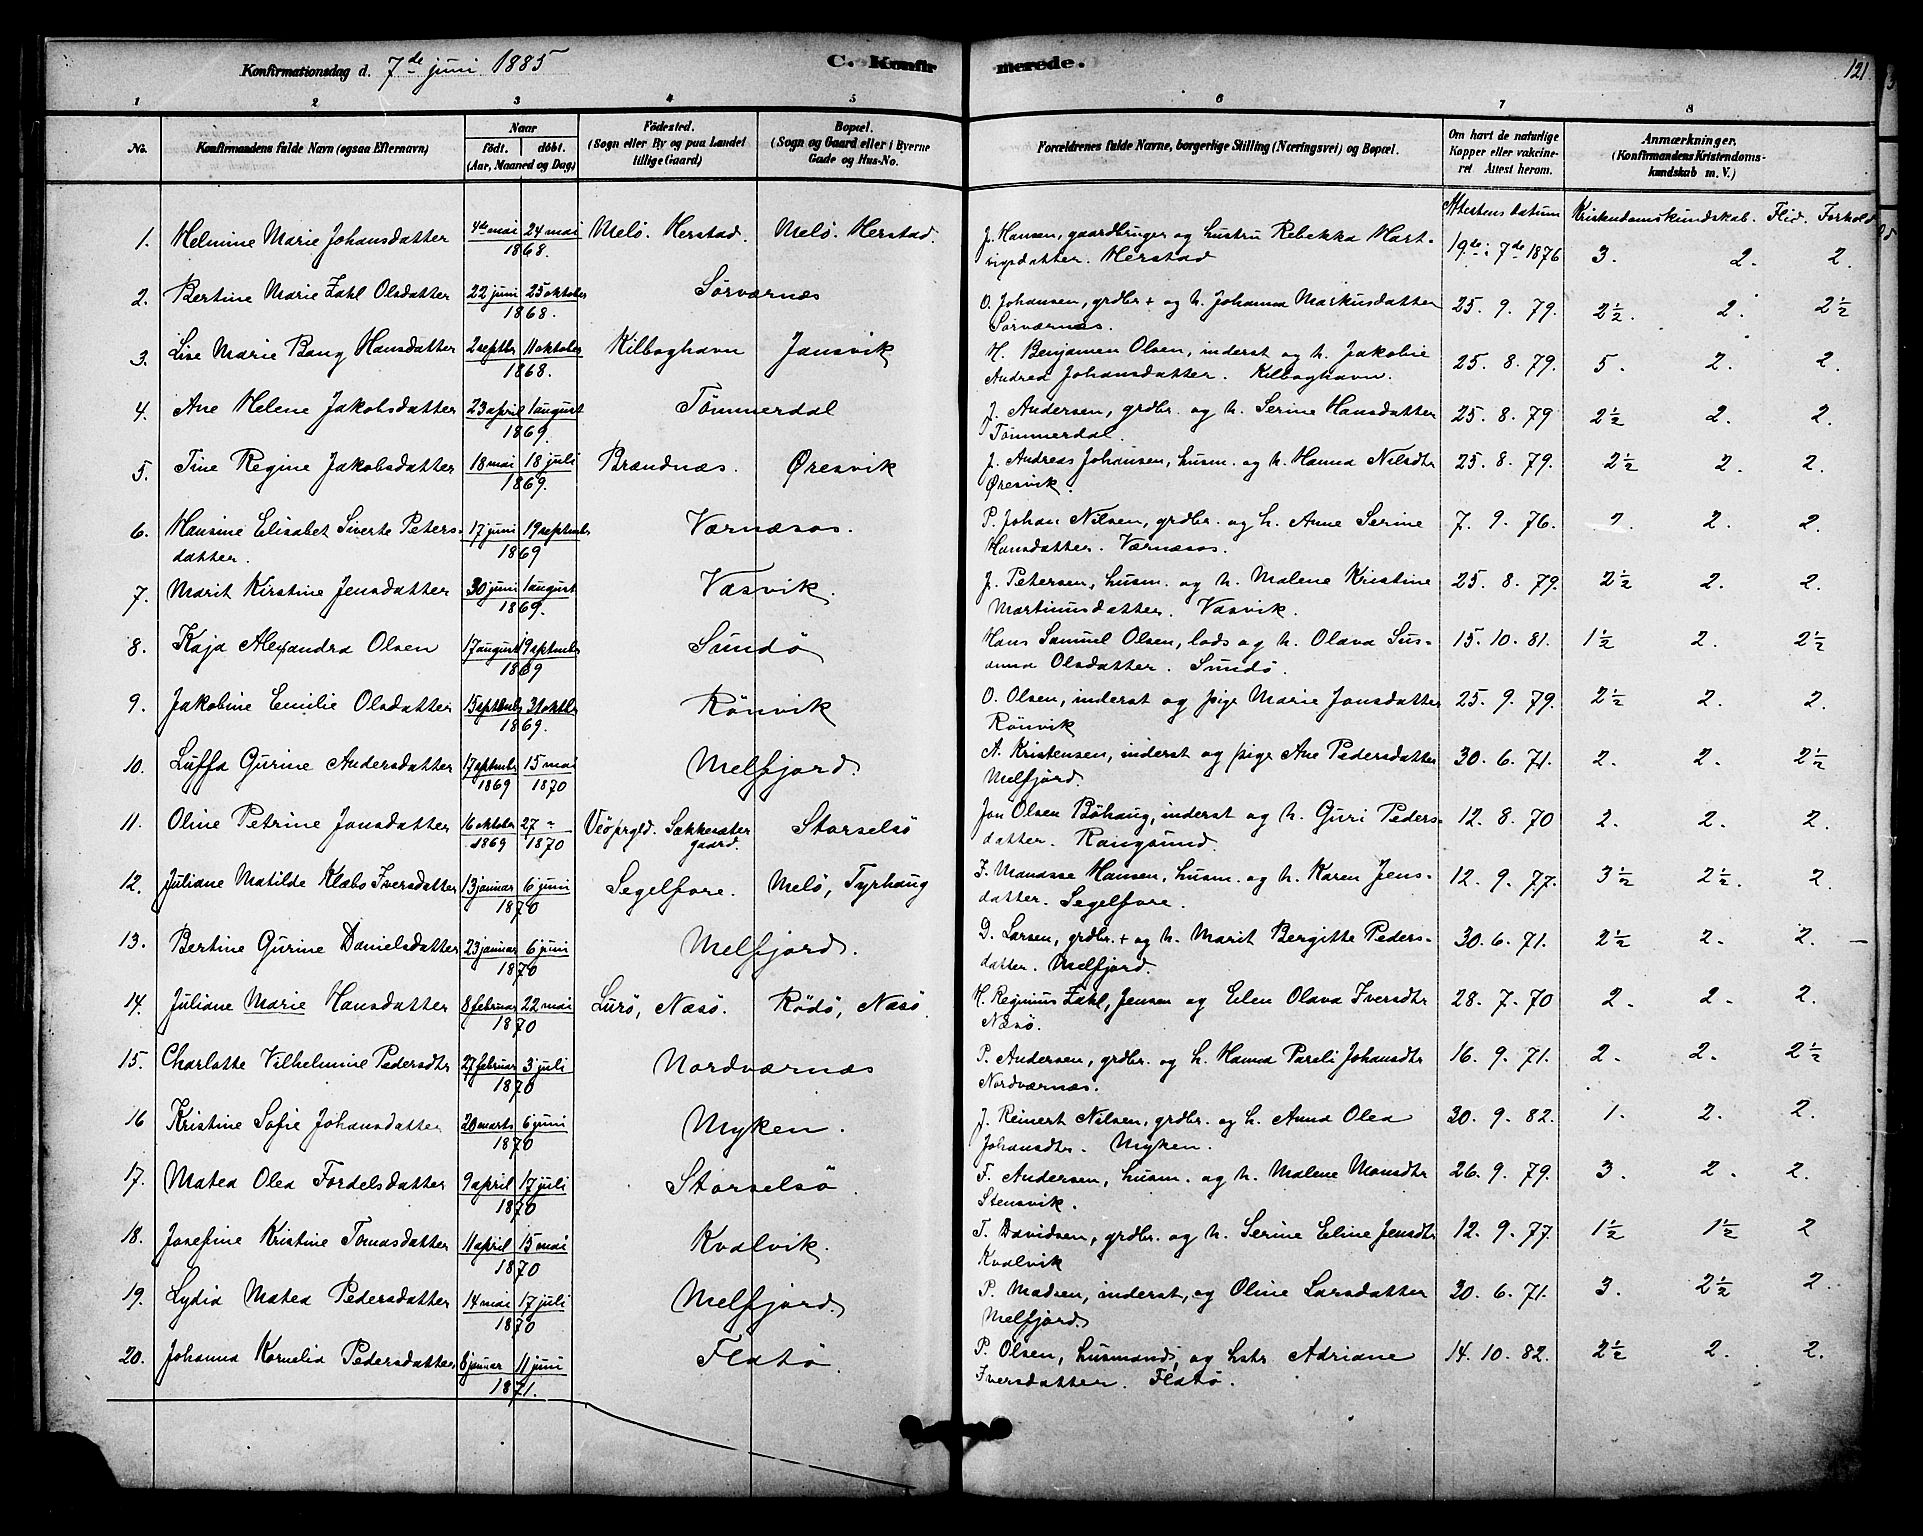 Konfirmationsdag d. 7de juni 1885 C. Konfirmerede. 121.
1 2 3 4 5 6 7 8
No. Konfirmandens fulde Navn (ogsaa Efternavn) Naar født. døbt. (Aar, Maaned og Dag) Fødested. (Sogn eller By og paa Landet tillige Gaard) Bopæl. (Sogn og Gaard eller i Byerne Gade og Hus-No. Forældrenes fulde Navne, borgerlige Stilling (Næringsvei) og Bopæl. Om havt de naturlige Kopper eller vakcineret Attest herom. Anmærkninger. (Konfirmandens Kristendomskundskab m. V.)
Attestens datum Kristendomskundskab. Flid. Forhold
1. Helmine Marie Johansdatter 4de mai 24 mai 1868. Melø. Herstad. Melø. Herstad. J. Hansen, gaardbruger og hustru Rebekka Hartvigsdatter. Herstad 19de: 7de 1876 3. 2. 2.
2. Bertine Marie Zahl Olsdatter 22 juni 25 oktober 1868. Sørværnæs O. Johansen, grdbr + og h. Johanna Markusdatter Sørværnæs. 25. 9. 79. 2½. 2. 2½
3. Lise Marie Bang Hansdatter 2 septbr 11 oktober 1868. Kilboghavn Jansvik H. Benjamin Olsen, inderst og h. Jakobie Andrea Johansdatter. Kilboghavn. 25. 8. 79. 5. 2. 2.
4. Ane Helene Jakobsdatter 23 april 1 august 1869. Tømmerdal J. Andersen, grdbr. og h. Serine Hansdatter Tømmerdal. 25. 8. 79 2½ 2. 2.
5. Tine Regine Jakobsdatter 18 mai 18 juli 1869. Brændnæs. Øresvik J. Andreas Johansen, husm. og h. Hanna Nilsdtr Øresvik. 25. 8. 79. 2½ 2. 2.
6. Hansine Elisabet Siverte Petersdatter. 17 juni 19 septmber 1869 Værnæsos. P. Johan Nilsen, grdbr. og h. Anne Serine Hansdatter. Værnæsos. 7. 9. 76. 2. 2.
7. Marit Kirstine Jensdatter 30 juni 1 august 1869. Vasvik. J. Petersen, husm. og h. Malene Kristine Martinusdatter. Vasvik. 25. 8. 79. 2½ 2. 2.
8. Kaja Alexandra Olsen 17 august 19 septmber 1869 Sundø Hans Samuel Olsen, lods og h. Olava Susanna Olsdatter. Sundø. 15. 10. 81. 1½ 2. 2½
9. Jakobine Emilie Olsdatter 15 septbr 31 oktbr 1869. Rönvik O. Olsen, inderst og pige Marie Jonsdatter Rönvik 25. 9. 79. 2½ 2. 2.
10. Luffa Gurine Andersdatter 17 septmber 1869 15 mai 1870 Melfjord. A. Kristensen, inderst og pige Ane Pedersdatter Melfjord. 30. 6. 71. 2. 2. 2½
11. Oline Petrine Jonsdatter 16 oktober 1869 27 - 1870 Veö prgld. Storselsö Jon Olsen Böhaug, inderst og h. Guri Pedersdatter. Rangsund. 12. 8. 70 2. 2. 2.
12. Juliane Matilde Klæbo Iversdatter 13 januar 6 juni 1870 Segelfore. Melö, Tyrhaug I. Manasse Hansen, husm. og h. Karen Jensdatter. Segelfore. 12. 9. 77. 3½ 2½. 2.
13. Bertine Gurine Danielsdatter 23 januar 6 juni 1870 Melfjord. D. Larsen, grdbr. + og h. Marit Bergitte Pedersdatter. Melfjord. 30. 6. 71. 2½ 2. 2. –
14. Juliane Marie Hansdatter 8 februar 22 mai 1870 Lurö, Næsö. Rödö, Næsö. H. Reginius Zahl, Jensen og Elen Olava Iversdtr Næsö. 28. 7. 70 2. 2. 2.
15. Charlotte Vilhelmine Pedersdtr 27 februar 3 juli 1870 Nordværnæs P. Andersen, grdbr. og h. Hanna Pareli Johansdtr Nordværnæs. 16. 9. 71. 2. 2. 2½
16 Kristine Sofie Johansdatter 20 marts 6 juni 1870 Myken. J. Reinert Nilsen, grdbr. og h. Anna Olea Johansdtr. Myken. 30. 9. 82. 1. 2. 2.
17. Matea Olea Fordelsdatter 9 april 17 juli 1870 Storselsö. F. Andersen, husm. og h. Malene Monsdtr Stensvik. 26. 9. 79. 3. 2. 2.
18. Josefine Kristine Tomasdatter 11 april 15 mai 1870 Kvalvik. T. Davidsen, grdbr. og h. Serine Eline Jensdtr Kvalvik 12. 9. 77. 1½ 1½ 2
19. Lydia Matea Pedersdatter 14 mai 17 juli 1870 Melfjord. P. Madsen, inderst, og Oline Larsdatter Melfjord. 30. 6. 71. 3. 2½ 2.
20. Johanna Kornelia Pedersdatter 8 januar 11 juni 1871. Flatø. P. Olsen, husmand, og hstr. Adriane Iversdatter. Flatø. 14. 10. 82. 2½ 2. 2.